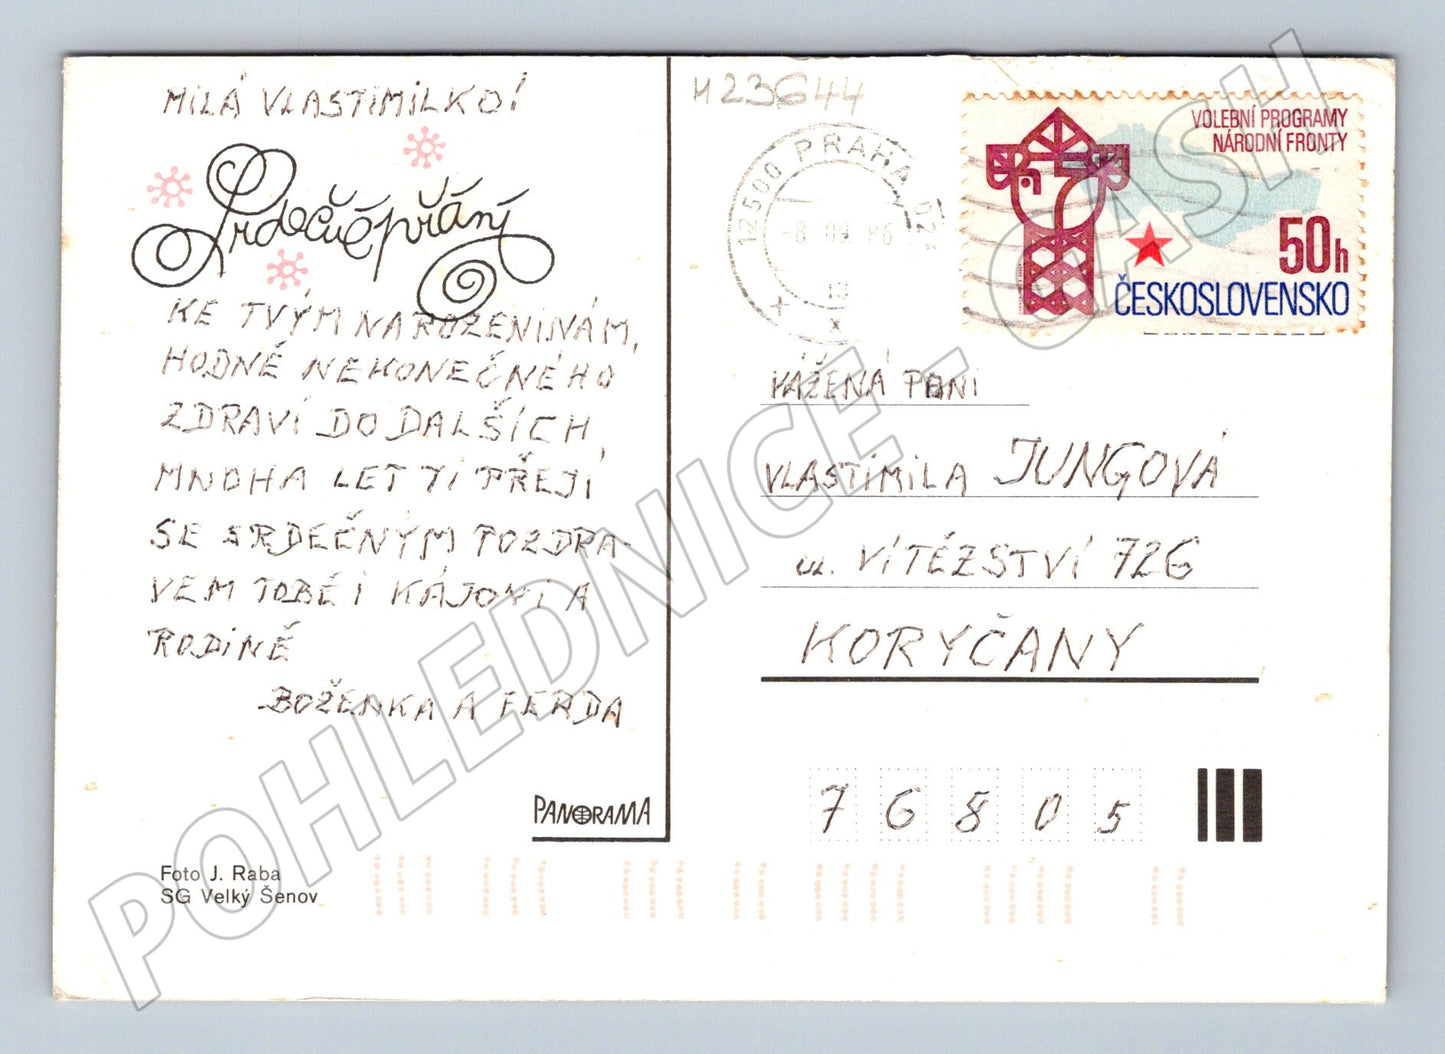 MILÁ VLASTIMILKO!
Srdečné přání
KE TVÝM NAROZENINÁM,
HODNĚ NEKONEČNÉHO
ZDRAVÍ DO DALŠÍCH
MNOHA LET TI PŘEJÍ
SE SRDEČNÝM POZDRA-
VEM TOBĚ I KÁJOVI A
RODINĚ
BOŽENKA A FERDA
PANORAMA
Foto J. Raba
SG Velký Šenov
M23644
12500 PRAHA 025
-8 09 86
VOLEBNÍ PROGRAMY
NÁRODNÍ FRONTY
50h
ČESKOSLOVENSKO
VÁŽENÁ PANI
VLASTIMILA JUNGOVÁ
ul. VÍTĚZSTVÍ 726
KORYČANY
76805
POHLEDNICE - CASH